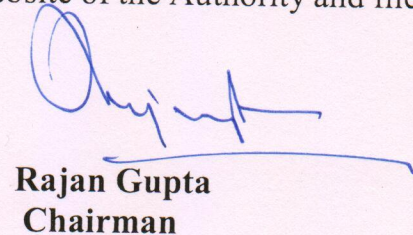 of the Authority and
Rajan Gupta
Chairman